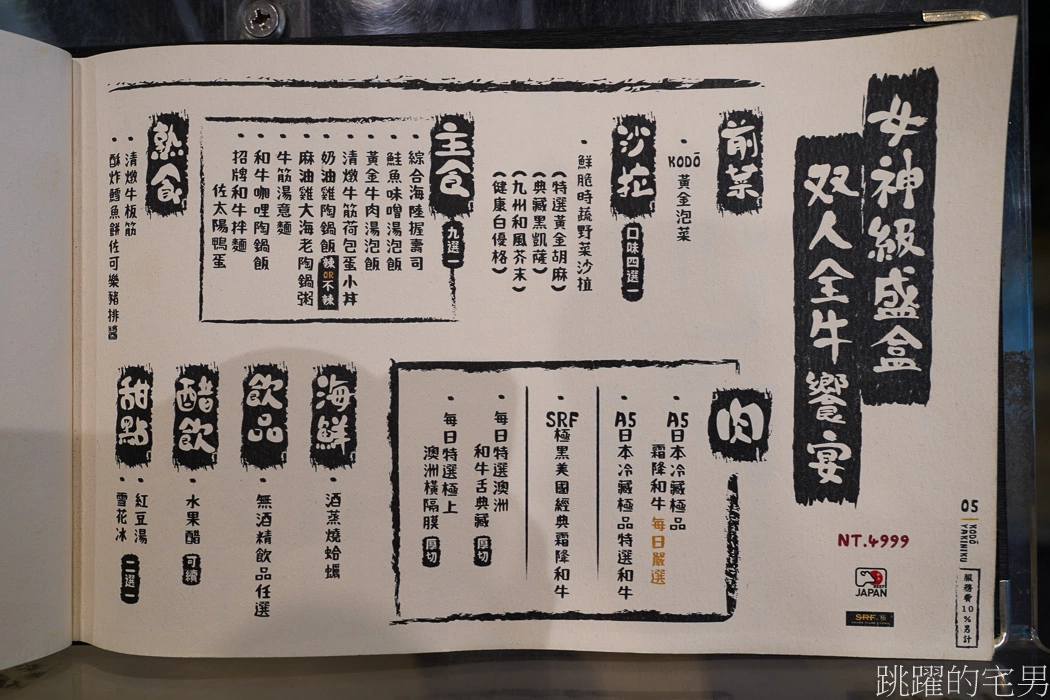 女神級盛盒
双人全牛饗宴
NT.4999
JAPAN
SRF
前菜
・KODŌ 黃金泡菜
沙拉
口味四選一
・鮮脆時蔬野菜沙拉
(特選黃金胡麻)
(典藏黑凱薩)
(九州和風芥末)
(健康白優格)
主食
九選一
・綜合海陸握壽司
・鮭魚味噌湯泡飯
・黃金牛肉湯泡飯
・清燉牛筋荷包蛋小丼
・奶油雞陶鍋飯 辣OR不辣
・麻油雞大海老陶鍋粥
・牛筋湯意麵
・和牛咖哩陶鍋飯
・招牌和牛拌麵
佐太陽鴨蛋
熱食
・清燉牛板筋
・酥炸鱈魚餅佐可樂豬排醬
肉
・A5日本冷藏極品
霜降和牛 每日嚴選
・A5日本冷藏極品特選和牛
・SRF極黑美國經典霜降和牛
・每日特選澳洲
和牛舌典藏 厚切
・每日特選極上
澳洲橫隔膜 厚切
海鮮
・酒蒸燒蛤蠣
飲品
・無酒精飲品任選
醋飲
・水果醋 可續
甜點
・紅豆湯
・雪花冰
二選一
05
KODŌ
YAKINIKU
服務費10%另計
跳躍的宅男